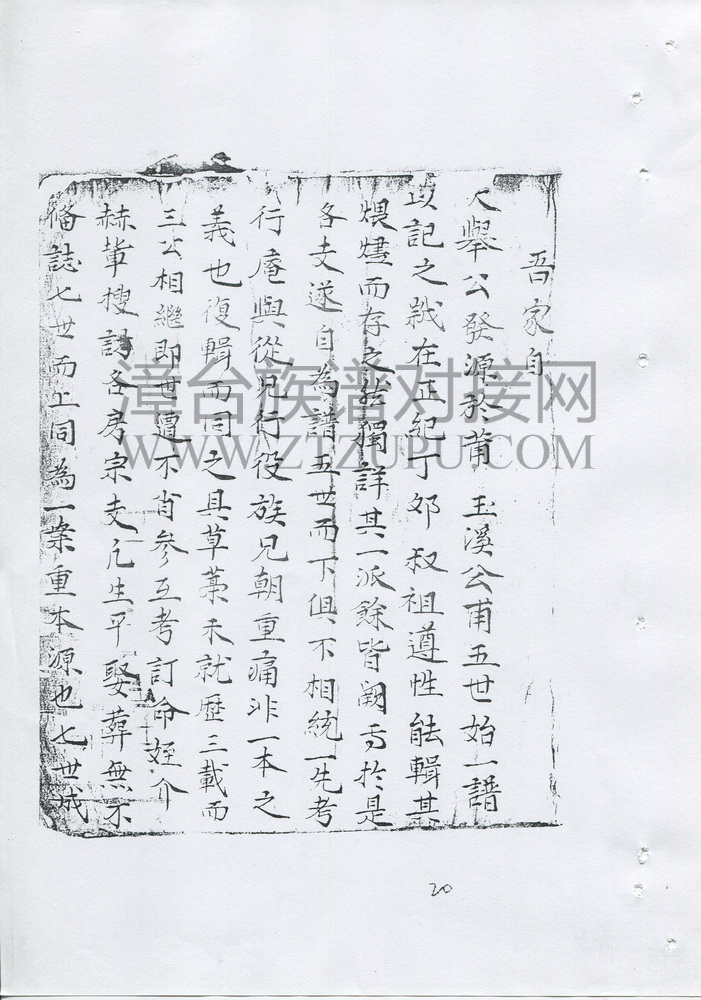 吾家自
大舉公發源於莆 玉溪公甫五世始一譜
以記之 在正紀丁卯 叔祖遵性能輯其
煨燼而存之然獨詳其一派餘皆闕焉於是
各支遂自為譜五世而下俱不相統一先考
行庵與從兄行役族兄朝重痛非一本之
義也復輯而同之具草藁未就歷三載而
三公相繼即世遭不肖參互考訂命姪介
赫輩搜訪各房宗支凡生平娶葬無不
備誌七世而上同為一業重本源也七世成
漳台族谱对接网
WWW.ZTZUPU.COM
20